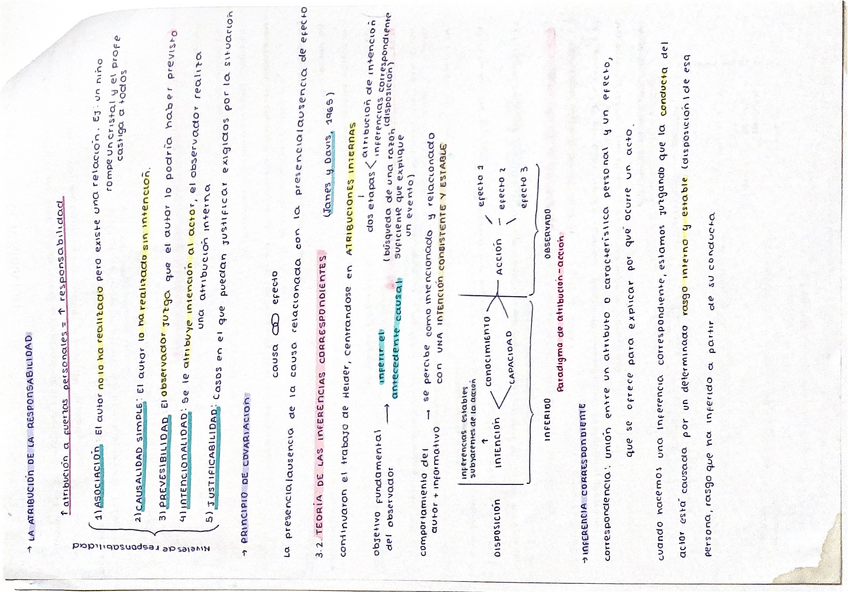 → LA ATRIBUCIÓN DE LA RESPONSABILIDAD
↑ atribución a fuerzas personales = ↑ responsabilidad
Niveles de responsabilidad
1) ASOCIACIÓN: El autor no lo ha realizado pero existe una relación. Ej: un niño
rompe un cristal y el profe
castiga a todos
2) CAUSALIDAD SIMPLE: El autor lo ha realizado sin intención.
3) PREVESIBILIDAD El observador juzga que el autor lo podría haber previsto
4) INTENCIONALIDAD: Se le atribuye intención al actor, el observador realiza
una atribución interna
5) JUSTIFICABILIDAD: Casos en el que puedan justificar exigidos por la situación
→ PRINCIPIO DE COVARIACIÓN
causa efecto
La presencia/ausencia de la causa relacionada con la presencia/ausencia de efecto
3.2. TEORÍA DE LAS INFERENCIAS CORRESPONDIENTES (Janes y Davis, 1965)
continuaron el trabajo de Heider, centrandose en ATRIBUCIONES INTERNAS
dos etapas < atribución de intención
inferencias correspondiente
(disposición)
objetivo fundamental del observador → inferir el antecedente causal (búsqueda de una razón
suficiente que explique
un evento)
comportamiento del → se percibe como intencionado y relacionado
autor + informativo con una INTENCIÓN CONSISTENTE Y ESTABLE
Inferencias estables
subyacentes de la acción
↑
DISPOSICIÓN INTENCIÓN < CONOCIMIENTO
CAPACIDAD
ACCIÓN
efecto 1
efecto 2
efecto 3
INFERIDO OBSERVADO
Paradigma de atribución-acción
→ INFERENCIA CORRESPONDIENTE
correspondencia: unión entre un atributo o característica personal y un efecto,
que se ofrece para explicar por qué ocurre un acto.
cuando hacemos una inferencia correspondiente, estamos juzgando que la conducta del
actor está causada por un determinado rasgo interno y estable (disposición) de esa
persona, rasgo que ha inferido a partir de su conducta